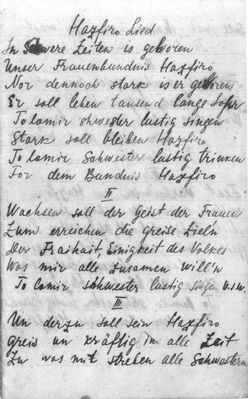 Hazfiro Lied
In Schwere Zeiten is geboren
Unser Frauenbundnis Hazfiro
Nor dennoch stark is er geboren
Er soll leben tausend lange Johr
To lomir shwester lustig singen
Stark soll bleiben Hazfiro
To lomir Schwester lustig trinken
For dem Bundnis Hazfiro
II
Wachsen soll der Geist der Frauen
Zum erreichen die greise Zieln
Der Fraihait, Einigkeit des Volkes
Was mir alle zusamen will'n
To lomir schwester lustig singen u.s.w.
III
Un derzu soll sein Hazfiro
Greis un kräftig in alle Zeit
Zu was mit streben alle Schwestern